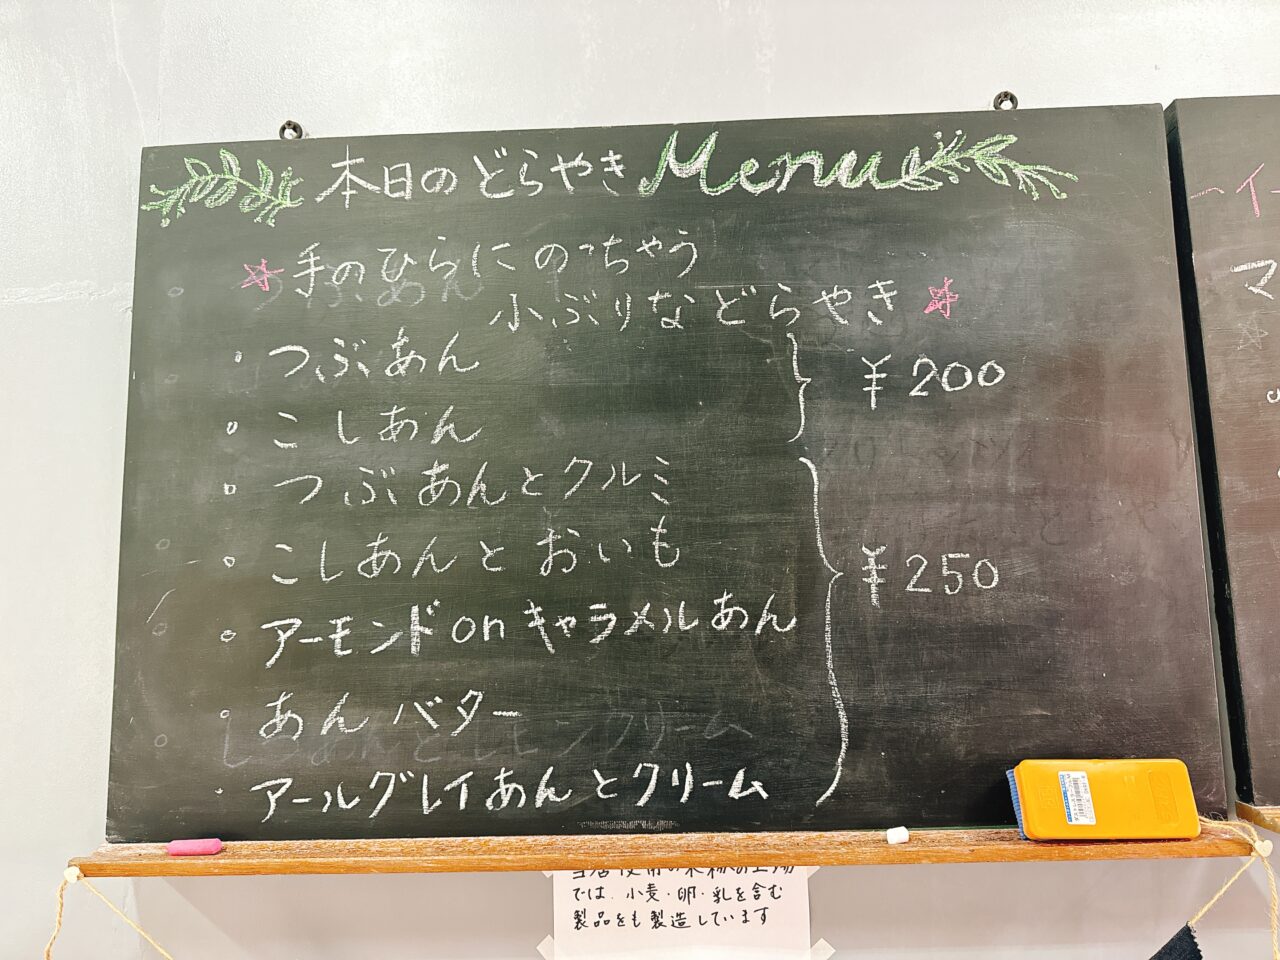 本日のどらやきMenu
☆手のひらにのっちゃう
小ぶりなどらやき☆
・つぶあん
。こしあん
¥200
。つぶあんとクルミ
。こしあんとおいも
。アーモンドonキャラメルあん
。あんバター
・アールグレイあんとクリーム
¥250
しろあんとレモンクリーム
では、小麦・卵・乳を含む
製品をも製造しています
イ
マ